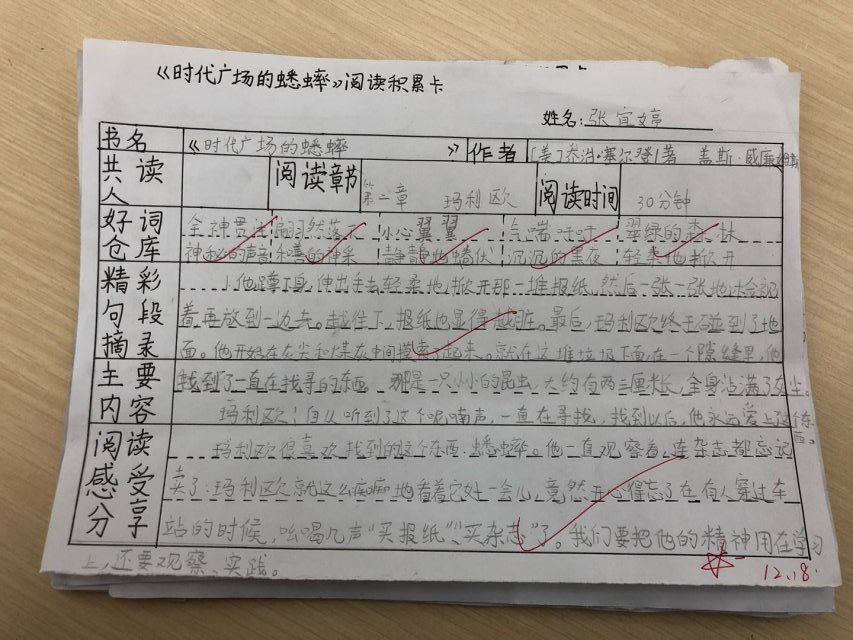 《时代广场的蟋蟀》阅读积累卡
姓名：张宜婷
书名 《时代广场的蟋蟀 》 作者 [美]乔治·塞尔登/著 盖斯·威廉姆斯
共读人 阅读章节 第二章 玛利欧 阅读时间 30分钟
好词仓库 全神贯注 翩然落 小心翼翼 气喘吁吁 翠绿的森林
神秘的声音 静静地蟠伏 沉沉的黑夜 轻柔地掀开
精彩句段摘录 他蹲下身,伸出手去轻柔地,掀开那一堆报纸,然后一张一张地
着再放到一边去。越往下,报纸也显得越脏。最后,玛利欧终于碰到了地
面。他开始在灰尖和煤灰中间摸索了起来。就在这堆垃圾下面,在一个隙缝里,他
主要内容 找到了一直在找寻的东西。那是一只小小的昆虫,大约有两三厘米长,全身沾满了灰尘。
玛利欧自从听到了这个呢喃声,一直在寻找,找到以后,他永远爱上这个东西。
阅读感受分享 玛利欧很喜欢找到的这个东西:蟋蟀。他一直观察着,连杂志都忘记
卖了:玛利欧就这么痴痴地看着它好一会儿,竟然开心得忘了在有人穿过车
站的时候,吆喝几声“买报纸”、“买杂志”了。我们要把他的精神用在学习
上,还要观察、实践。
12.18.